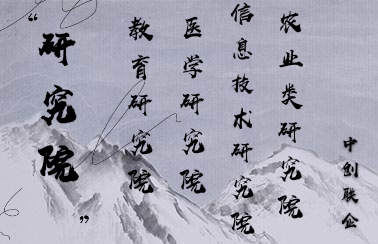 “研究院”
教育研究院
医学研究院
信息技术研究院
农业类研究院
中创联合